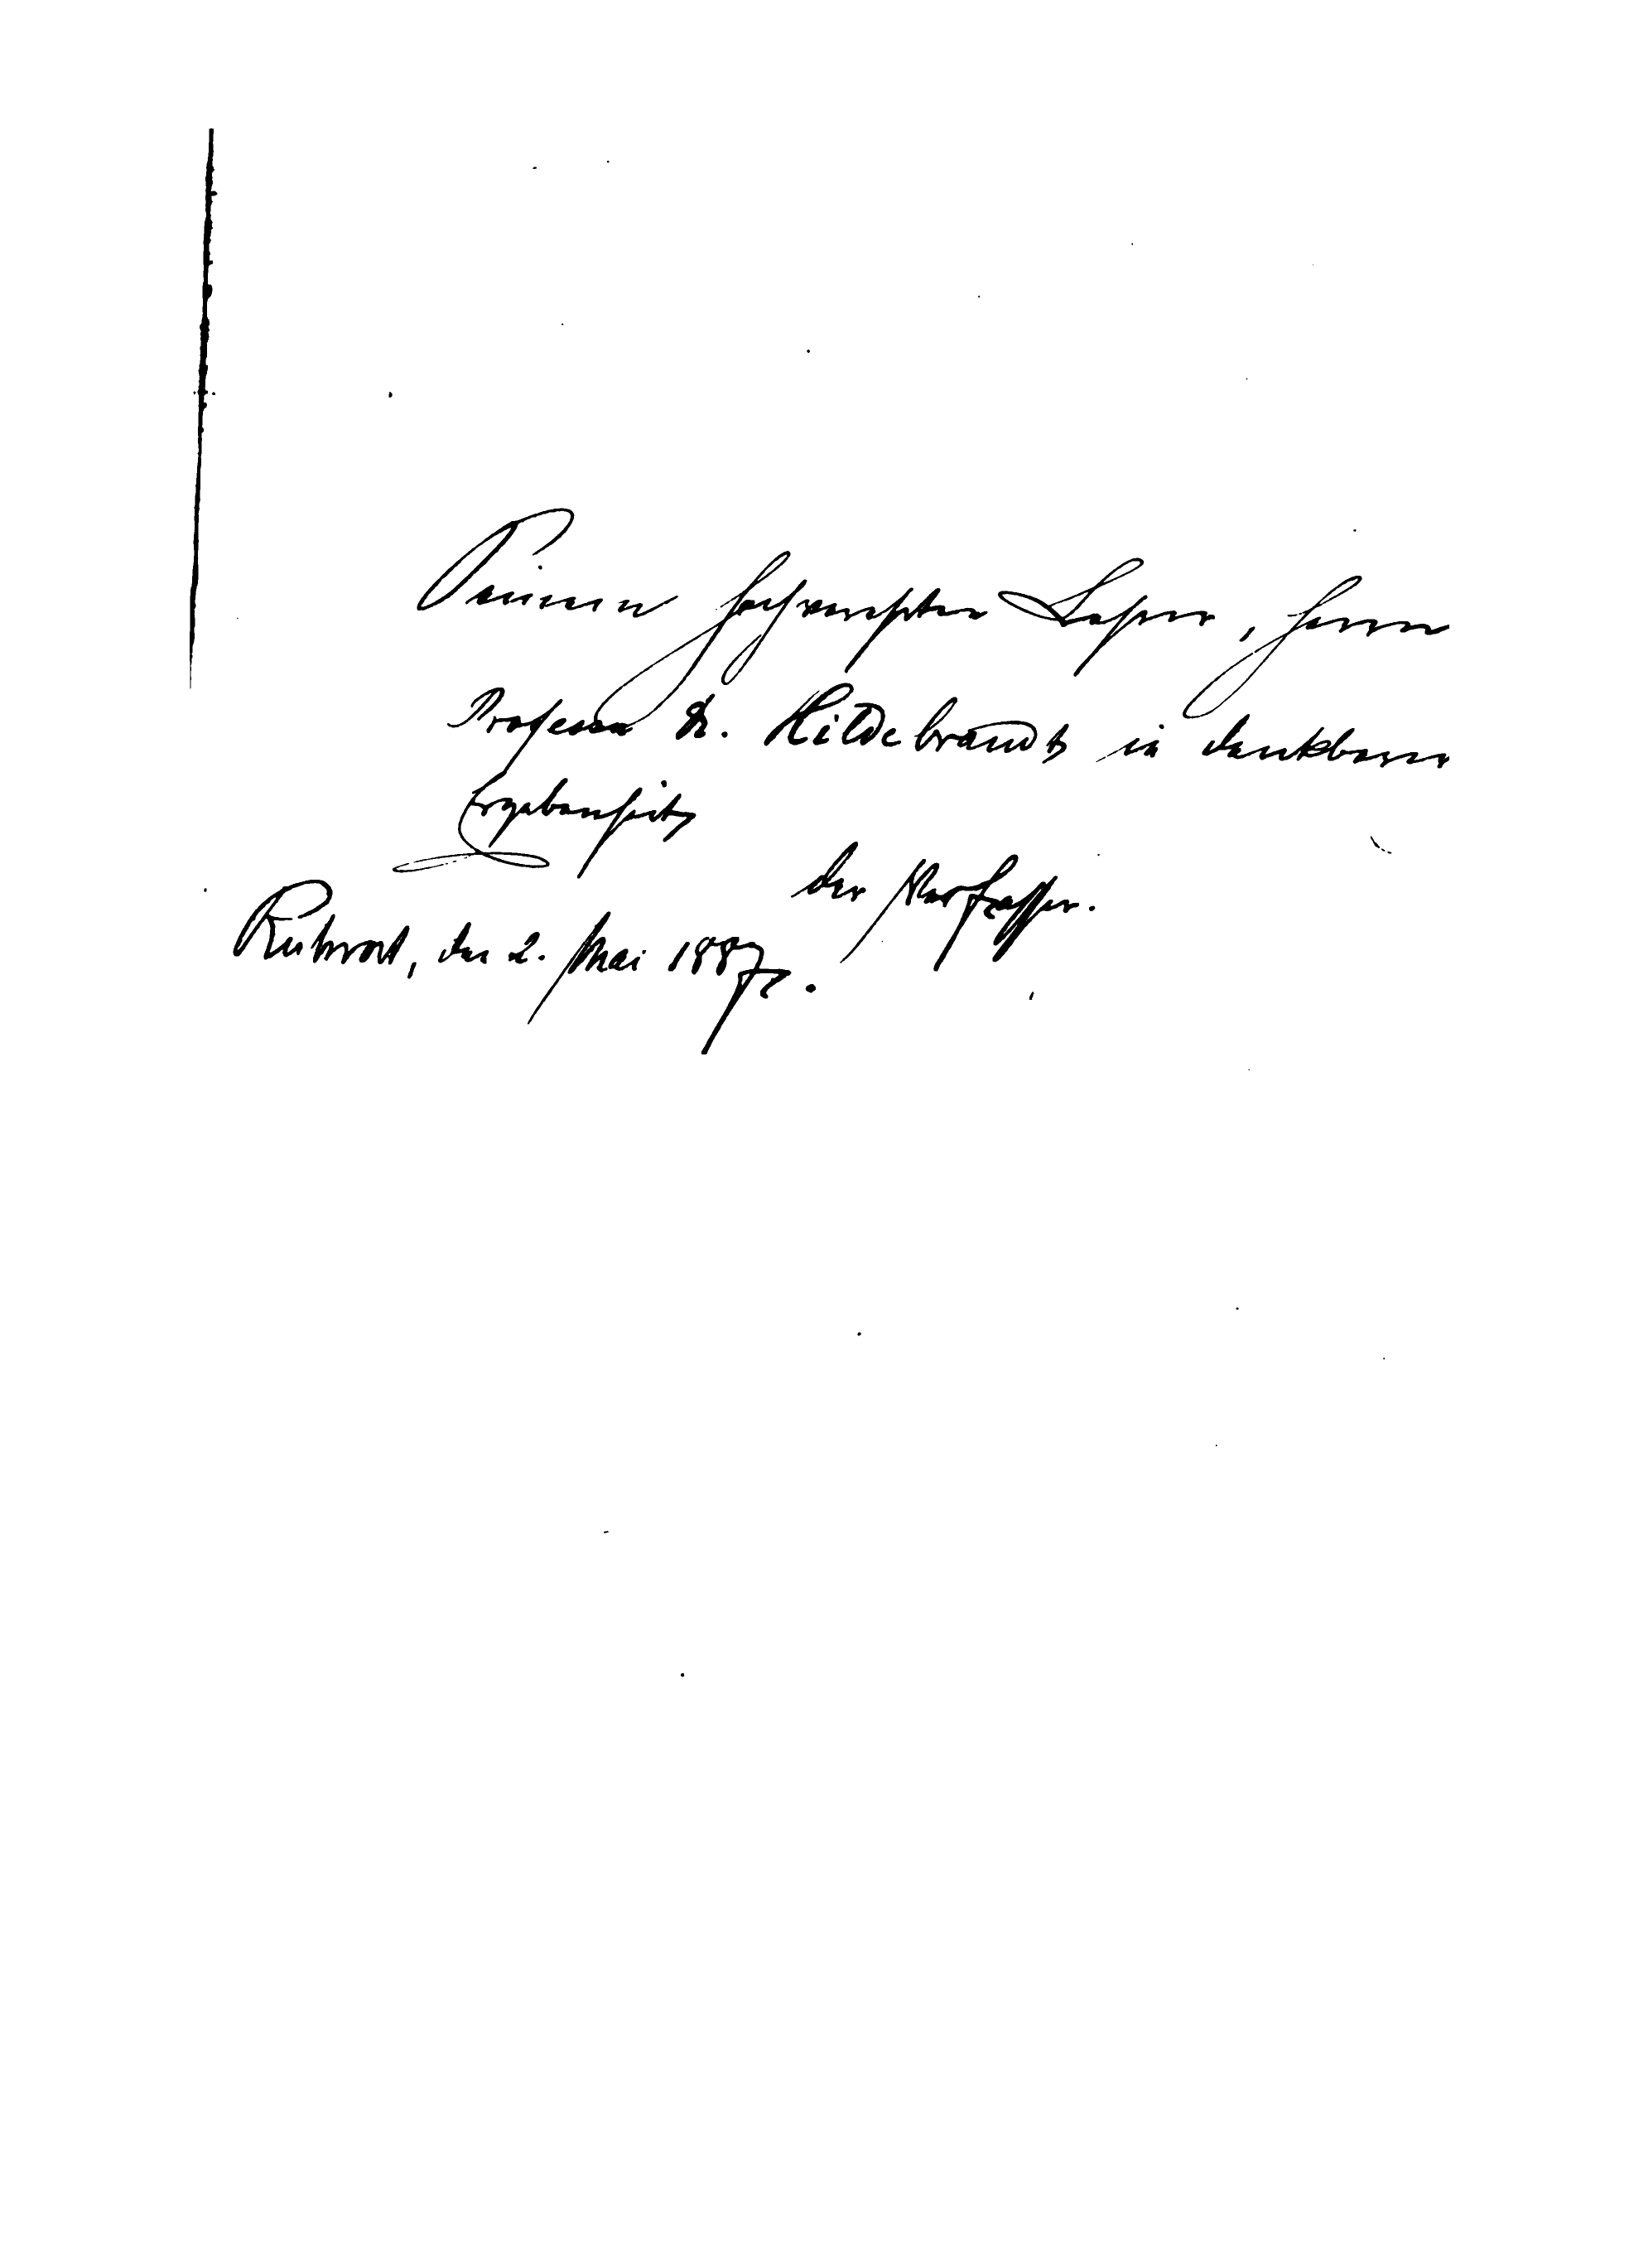 Seinem hochverehrten Lehrer, Herrn
Professor Dr. Hildebrandt in dankbarer
Ergebenheit
der Verfasser.
Ruhrort, den 2. Mai 1887.